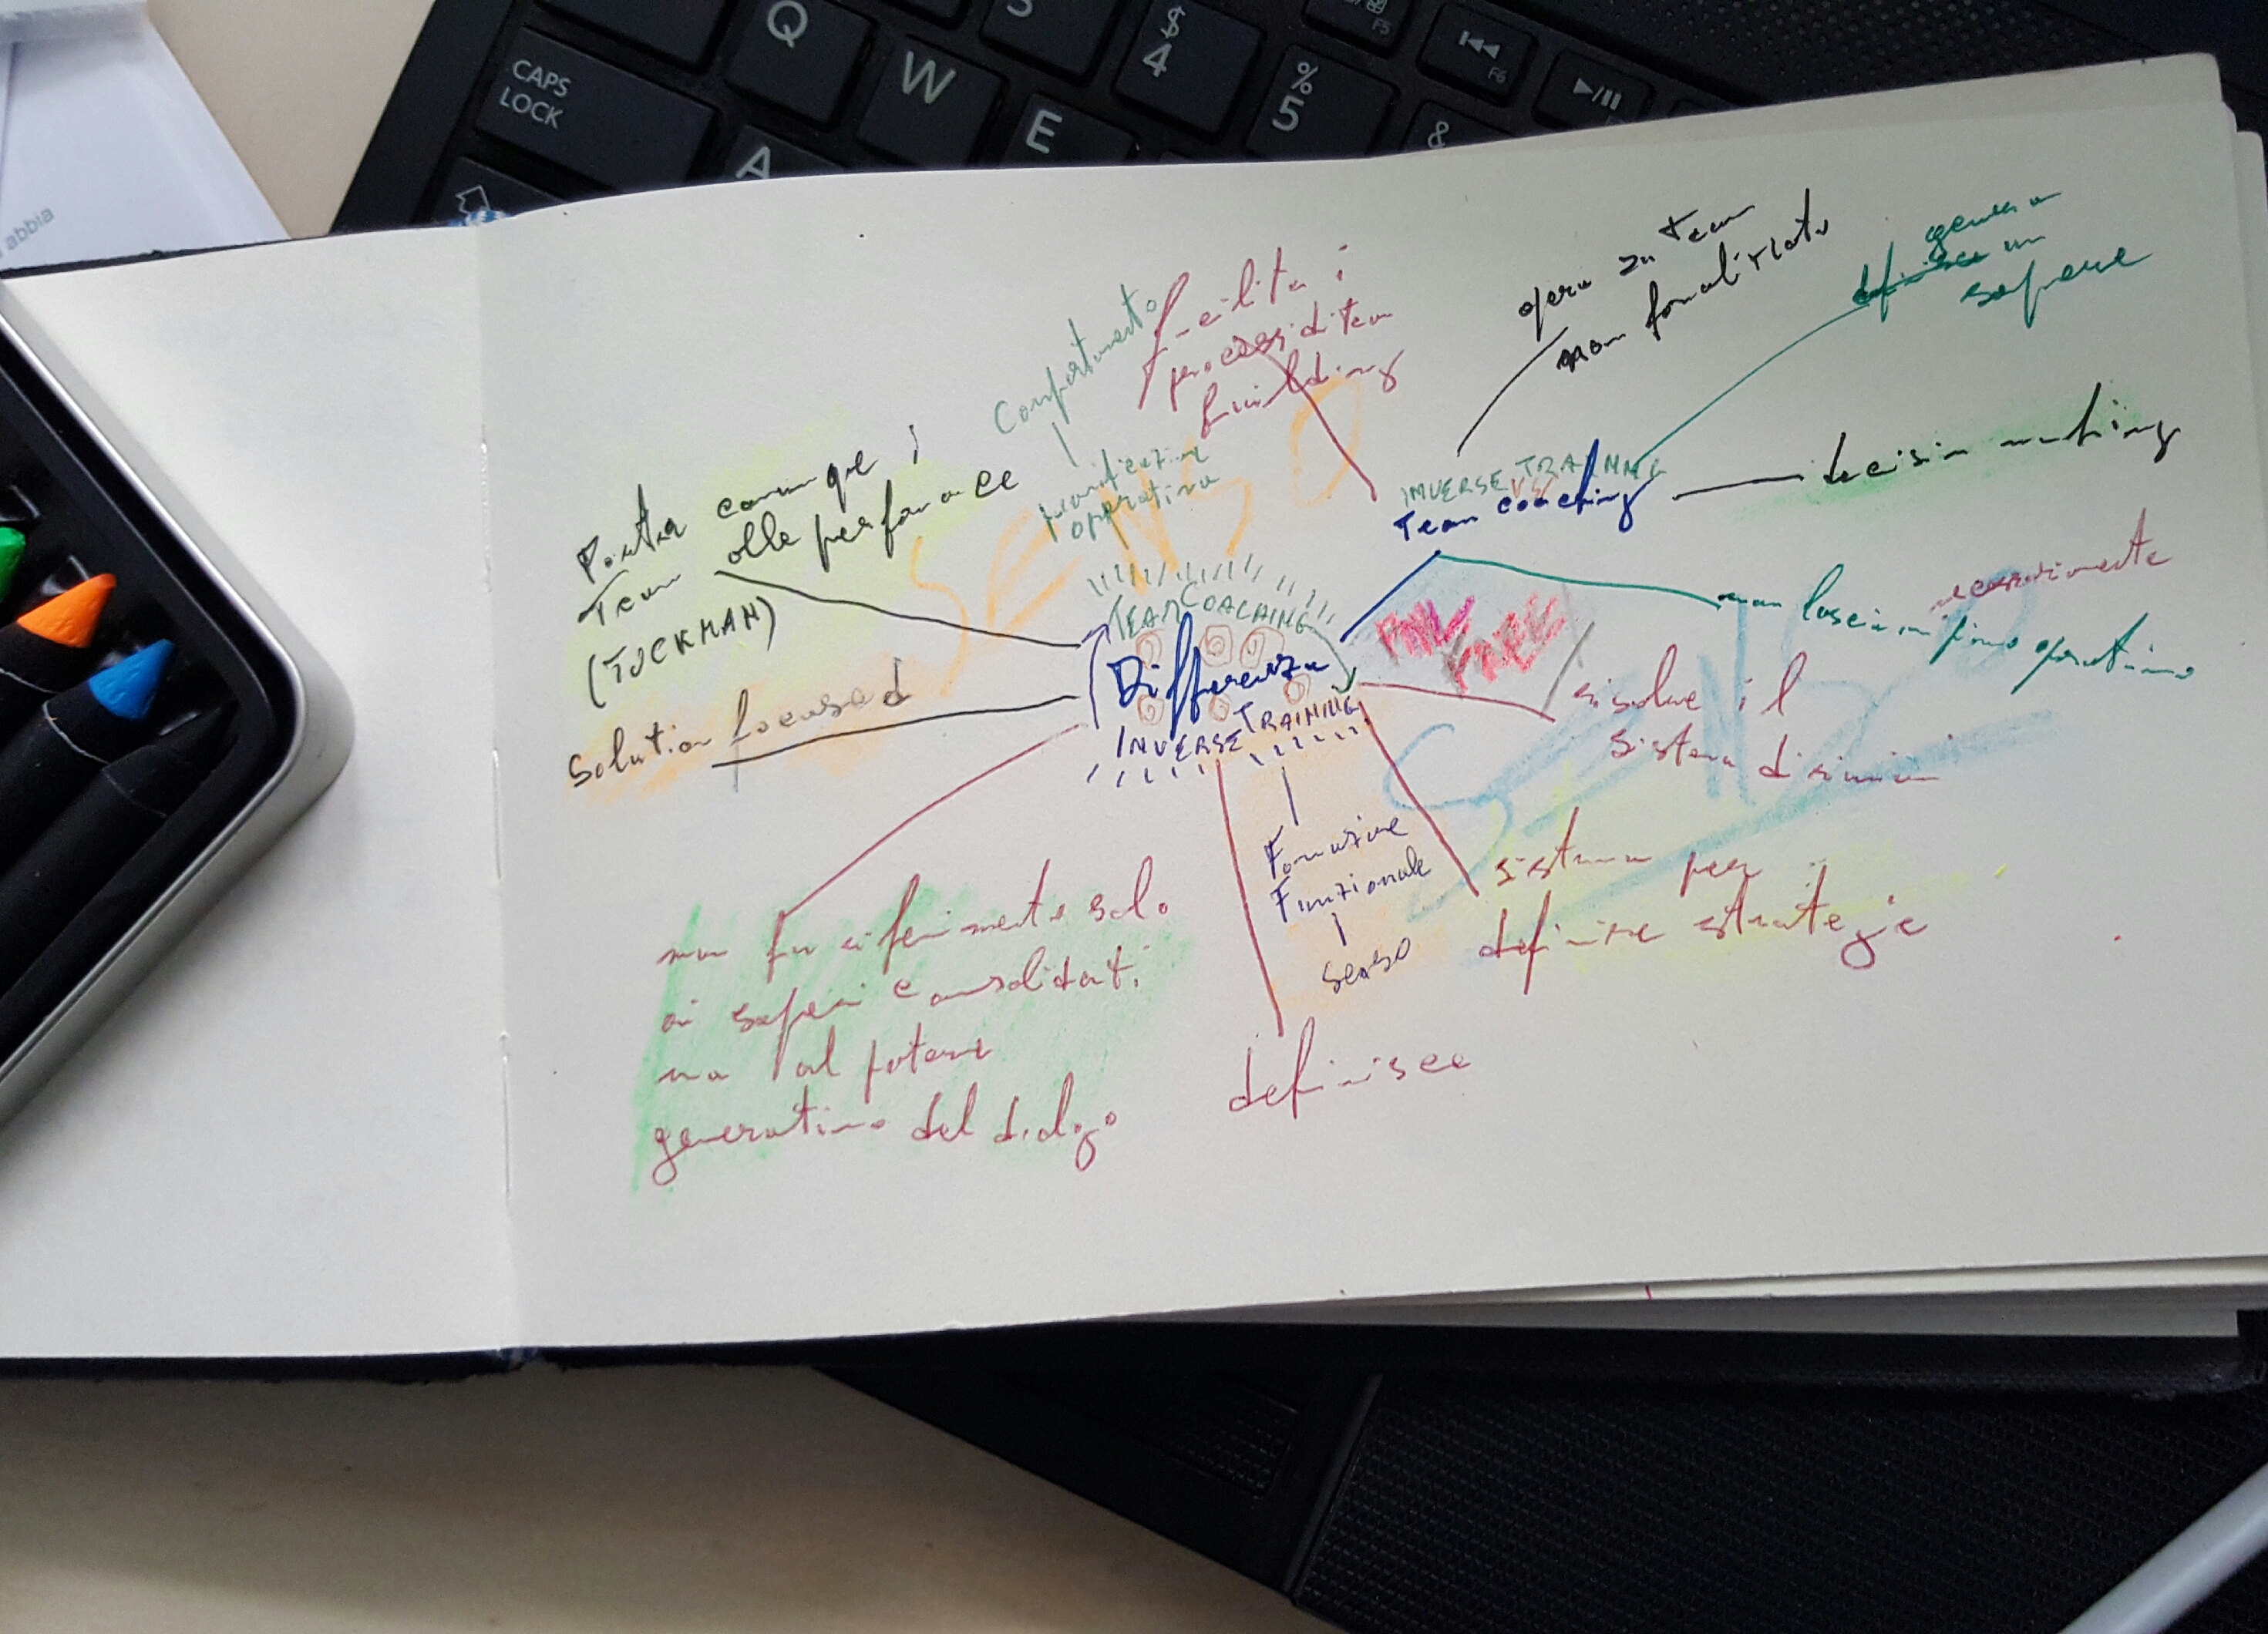 Q
CAPS
LOCK
W
$
4
%
5
F5
F6
E
A
&
abbia
Comportamento
facilita i
processi di team
building
opera su team
non formalizzato
genera
definisce un
sapere
Porta comunque i
Team alla performance
(TUCKMAN)
Solution focused
pianificazione
operativa
SENSO
INVERSE TRAINING
VS
Team coaching
decision making
non lascia necessariamente
un piano operativo
TEAM COACHING
Differenza
INVERSE TRAINING
risolve il
sistema di
SENSO
Formazione
Funzionale
senso
sistema per
definire strategie
non fa riferimento solo
ai saperi consolidati
ma al potere
generativo del dialogo
definisce